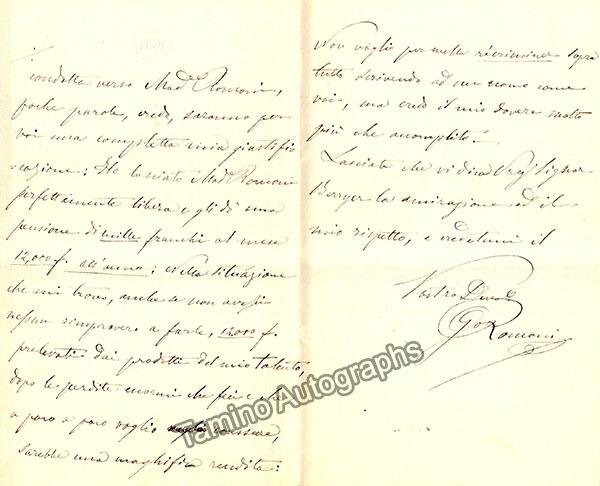 condotta verso Mad. Ronconi,
poche parole, credo, saranno per
voi una completta mia giustifi
cazione: Ho lasciato Mad. Ronconi
perfettamente libera e gli dò una
pensione di mille franchi al mese
12,000 f. all'anno; nella situazione
che mi trovo, anche se non avessi
nessun rimprovero a farle, 12000 f.
prelevati dai prodotti del mio talento,
dopo le perdite enormi che feci e che
a poco a poco voglio
sarebbe una maghifica rendita:
Non voglio permettermi recriminer sopra
tutto scrivendo ad un uomo come
voi, ma credo il mio dovere molto
più che accomplito!
Lasciate che vi dica Preg. Signor
Berryer la amirazione ed il
mio rispetto, e credetemi il
Vostro Devo
Gio Ronconi
Tamino Autographs